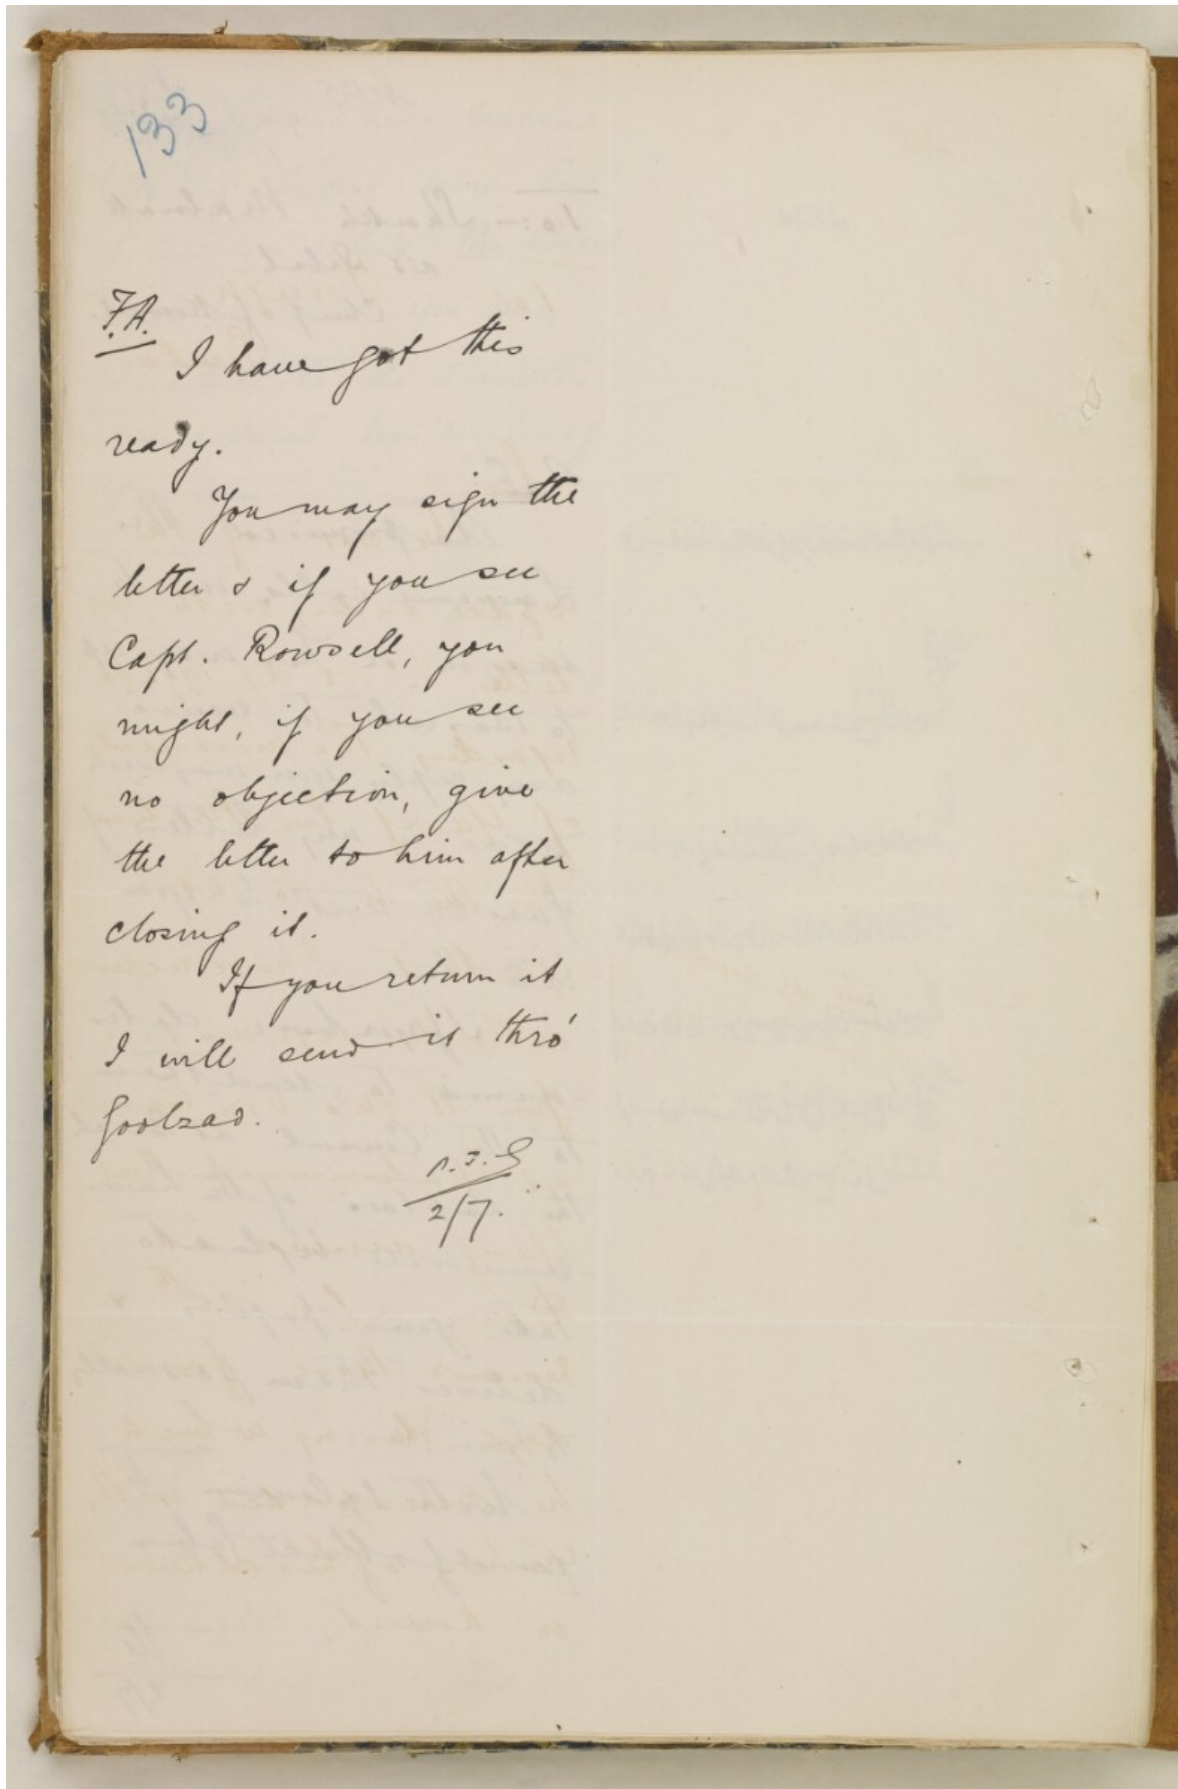 133
F.A.
I have got this
ready.
You may sign the
letter & if you see
Capt. Rowsell, you
might, if you see
no objection, give
the letter to him after
closing it.
If you return it
I will send it thro'
Goolzad.
2/7.